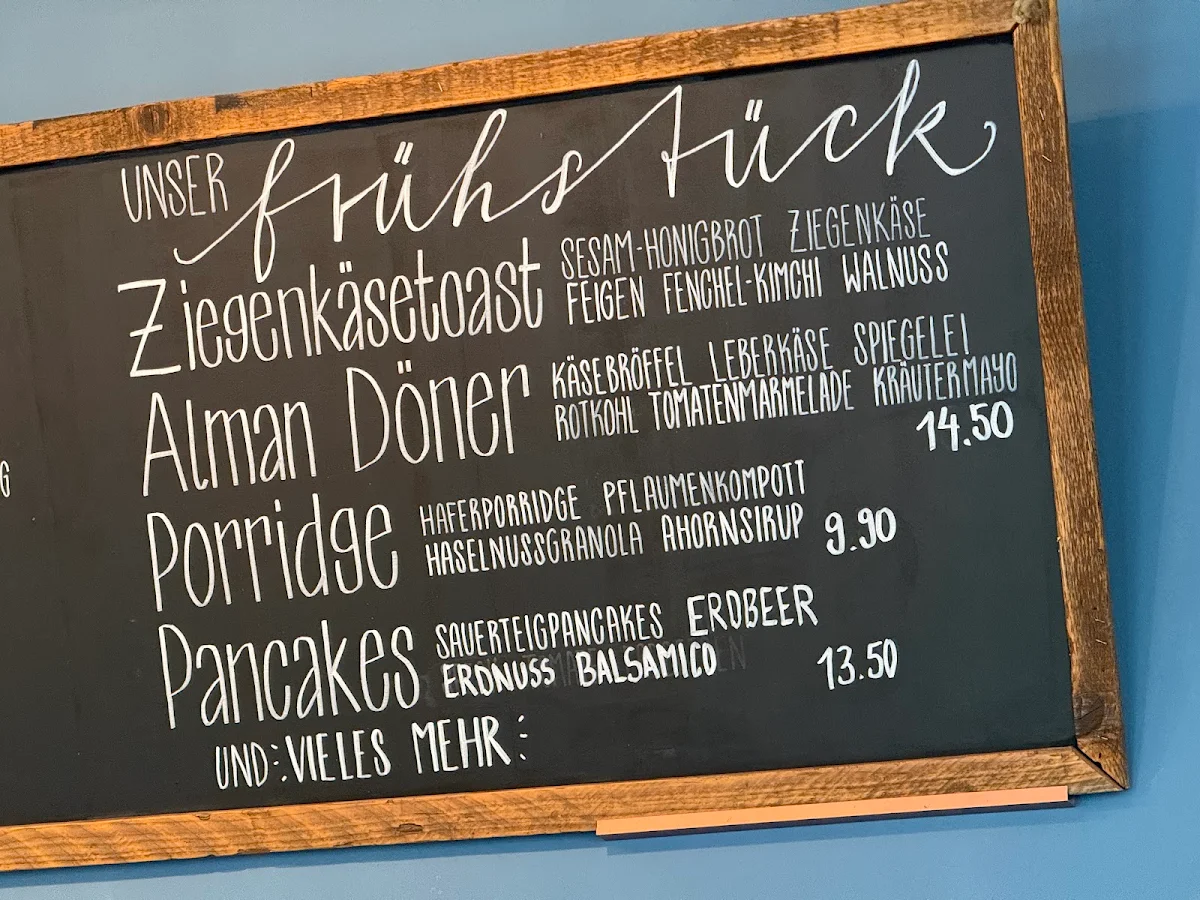 UNSER frühstück
Ziegenkäsetoast SESAM-HONIGBROT ZIEGENKÄSE
FEIGEN FENCHEL-KIMCHI WALNUSS
Alman Döner KÄSEBRÖFFEL LEBERKÄSE SPIEGELEI
ROTKOHL TOMATENMARMELADE KRÄUTERMAYO
14.50
Porridge HAFERPORRIDGE PFLAUMENKOMPOTT
HASELNUSSGRANOLA AHORNSIRUP 9.90
Pancakes SAUERTEIGPANCAKES ERDBEER
ERDNUSS BALSAMICO 13.50
UND: VIELES MEHR :
G